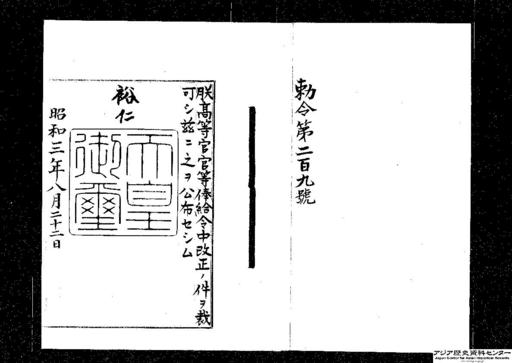 勅令第二百九號
朕高等官官等俸給令中改正ノ件ヲ裁
可シ茲ニ之ヲ公布セシム
裕仁
天皇
御璽
昭和三年八月二十二日
アジア歴史資料センター
Japan Center for Asian Historical Records